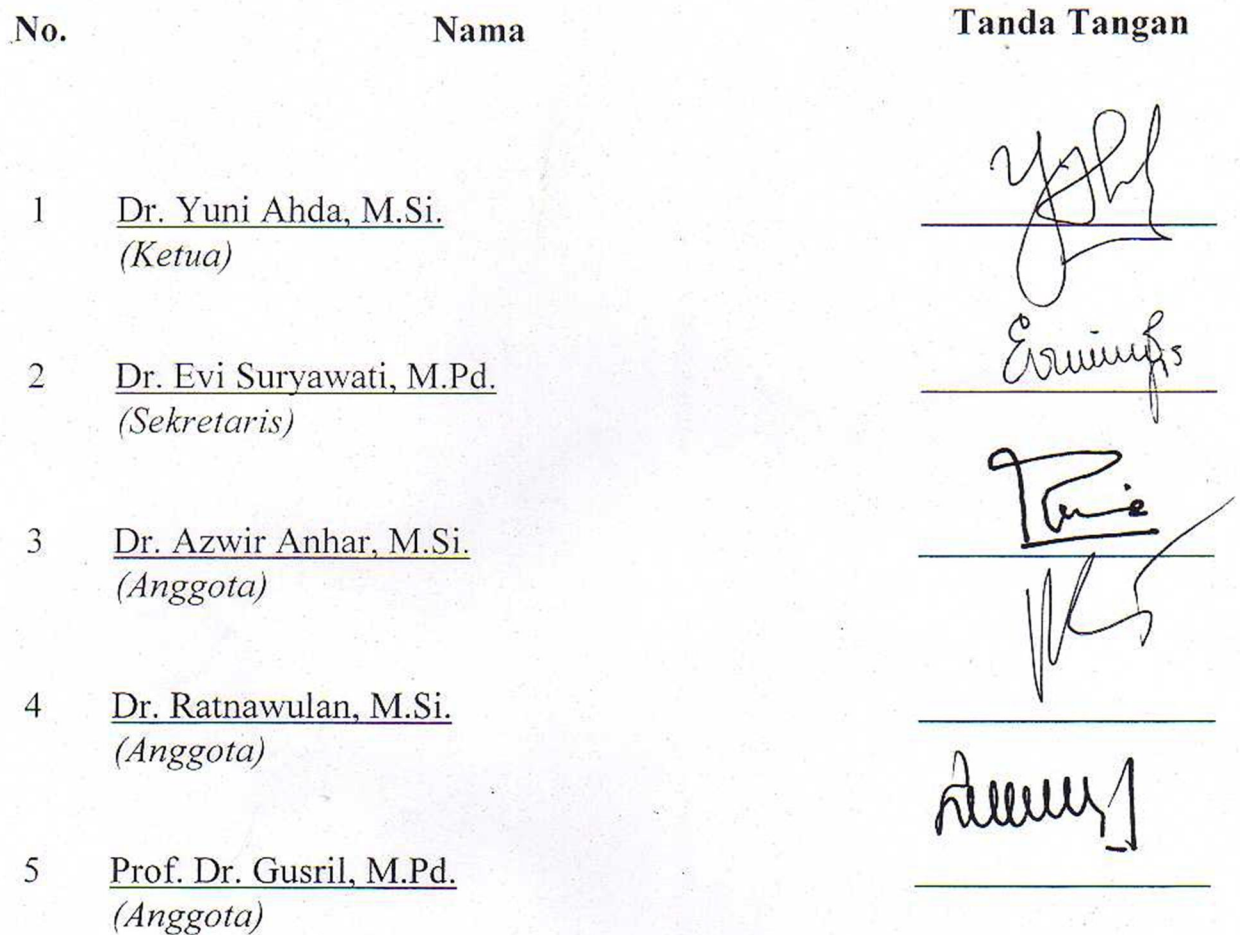 No. Nama Tanda Tangan
1 Dr. Yuni Ahda, M.Si.
(Ketua)
2 Dr. Evi Suryawati, M.Pd.
(Sekretaris)
3 Dr. Azwir Anhar, M.Si.
(Anggota)
4 Dr. Ratnawulan, M.Si.
(Anggota)
5 Prof. Dr. Gusril, M.Pd.
(Anggota)